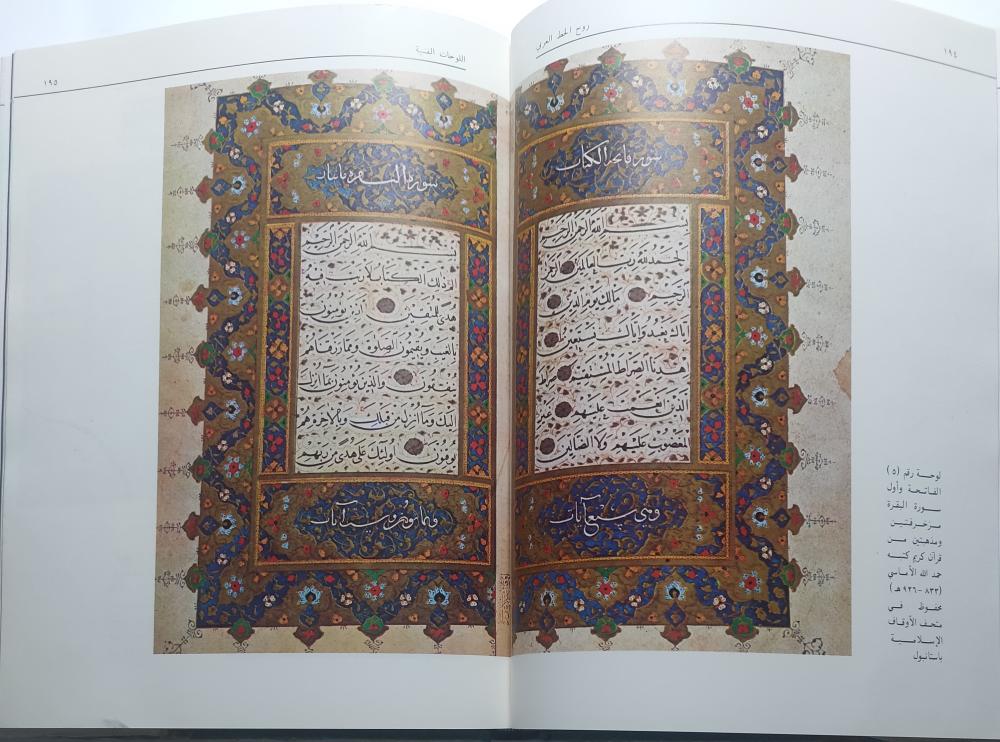 ١٩٤
روح الخط العربي
سورة فاتحة الكتاب
بسم الله الرحمن الرحيم
الحمد لله رب العالمين الرحمن
الرحيم مالك يوم الدين
اياك نعبد واياك نستعين
اهدنا الصراط المستقيم صراط
الذين انعمت عليهم غير
المغضوب عليهم ولا الضالين
وهي سبع آيات
لوحة رقم (٥)
الفاتحة وأول
سورة البقرة
مزخرفتين
ومذهبتين من
قرآن كريم كتبه
حمد الله الأماسي
(٨٣٣-٩٢٦ هـ)
محفوظ في
متحف الأوقاف
الإسلامية
باستانبول
اللوحات الفنية
١٩٥
سورة البقرة
بسم الله الرحمن الرحيم
الم ذلك الكتاب لا ريب فيه
هدى للمتقين الذين يؤمنون
بالغيب ويقيمون الصلوة ومما رزقناهم
ينفقون والذين يؤمنون بما انزل
اليك وما انزل من قبلك وبالاخرة هم
يوقنون اولئك على هدى من ربهم